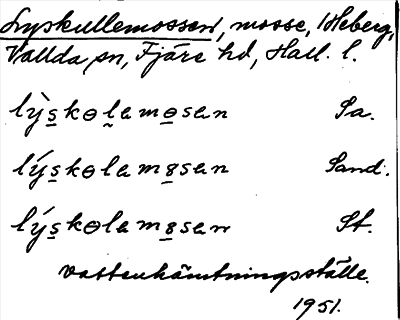 Lyskullemossen, mosse, Heberg,
Vallda sn, Fjäre hd, Hall. l.
lỳskɵlemɵsen Sa.
lýskɵlemɵsen Sand.
lýskɵlemɵsen St.
vattenhämtningsställe.
1951.